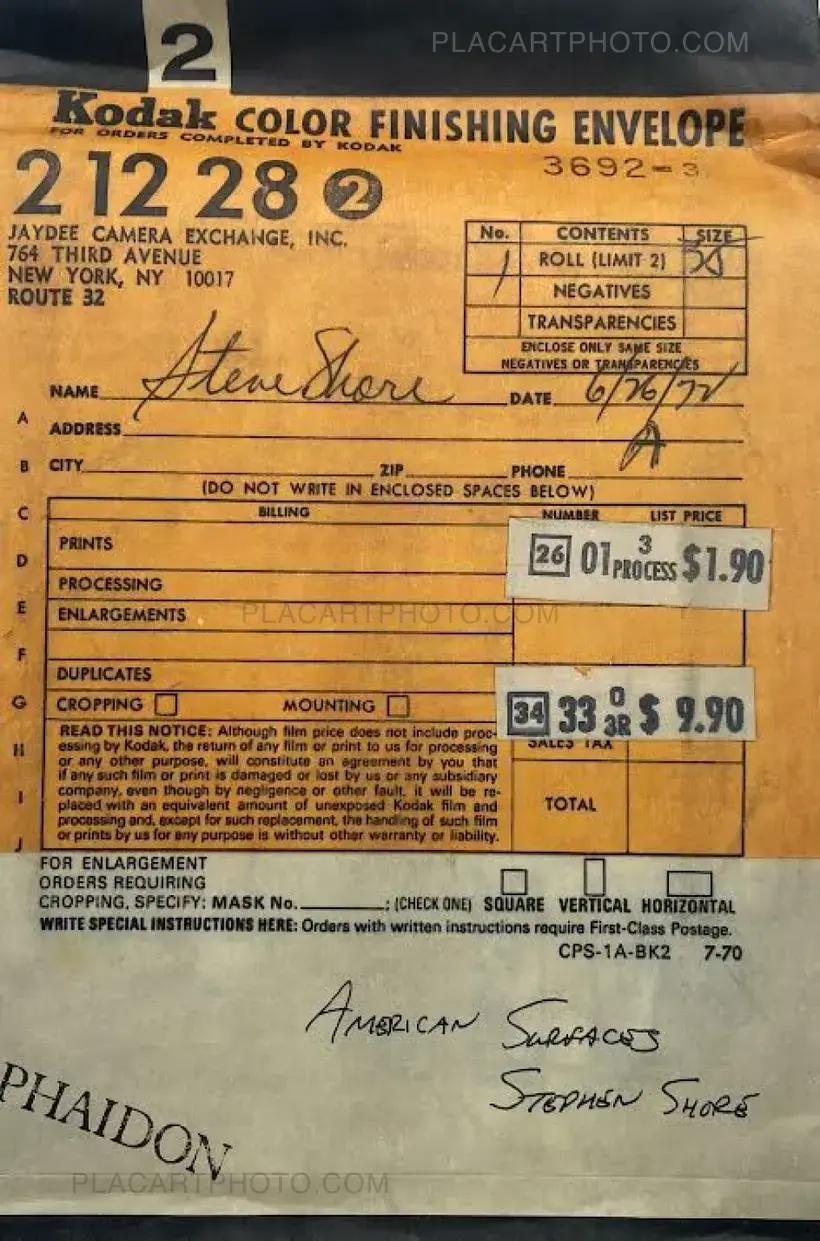 PLACARTPHOTO.COM
2
Kodak COLOR FINISHING ENVELOPE
FOR ORDERS COMPLETED BY KODAK
3692-3
2 12 28 2
JAYDEE CAMERA EXCHANGE, INC.
764 THIRD AVENUE
NEW YORK, NY 10017
ROUTE 32
No. CONTENTS SIZE
1 ROLL (LIMIT 2) 35
NEGATIVES
TRANSPARENCIES
ENCLOSE ONLY SAME SIZE
NEGATIVES OR TRANSPARENCIES
NAME Steve Shore DATE 6/26/72
A
ADDRESS A
B CITY ZIP PHONE
(DO NOT WRITE IN ENCLOSED SPACES BELOW)
C BILLING NUMBER LIST PRICE
PRINTS
26 01 3 PROCESS $1.90
D
PROCESSING
E ENLARGEMENTS
PLACARTPHOTO.COM
F
DUPLICATES
G CROPPING MOUNTING
34 33 0 3R $ 9.90
READ THIS NOTICE: Although film price does not include proc-
essing by Kodak, the return of any film or print to us for processing
or any other purpose, will constitute an agreement by you that
if any such film or print is damaged or lost by us or any subsidiary
company, even though by negligence or other fault, it will be re-
placed with an equivalent amount of unexposed Kodak film and
processing and, except for such replacement, the handling of such film
or prints by us for any purpose is without other warranty or liability.
H
I
J
SALES TAX
TOTAL
FOR ENLARGEMENT
ORDERS REQUIRING
CROPPING, SPECIFY: MASK No. ; (CHECK ONE) SQUARE VERTICAL HORIZONTAL
WRITE SPECIAL INSTRUCTIONS HERE: Orders with written instructions require First-Class Postage.
CPS-1A-BK2 7-70
AMERICAN SURFACES
STEPHEN SHORE
PHAIDON
PLACARTPHOTO.COM